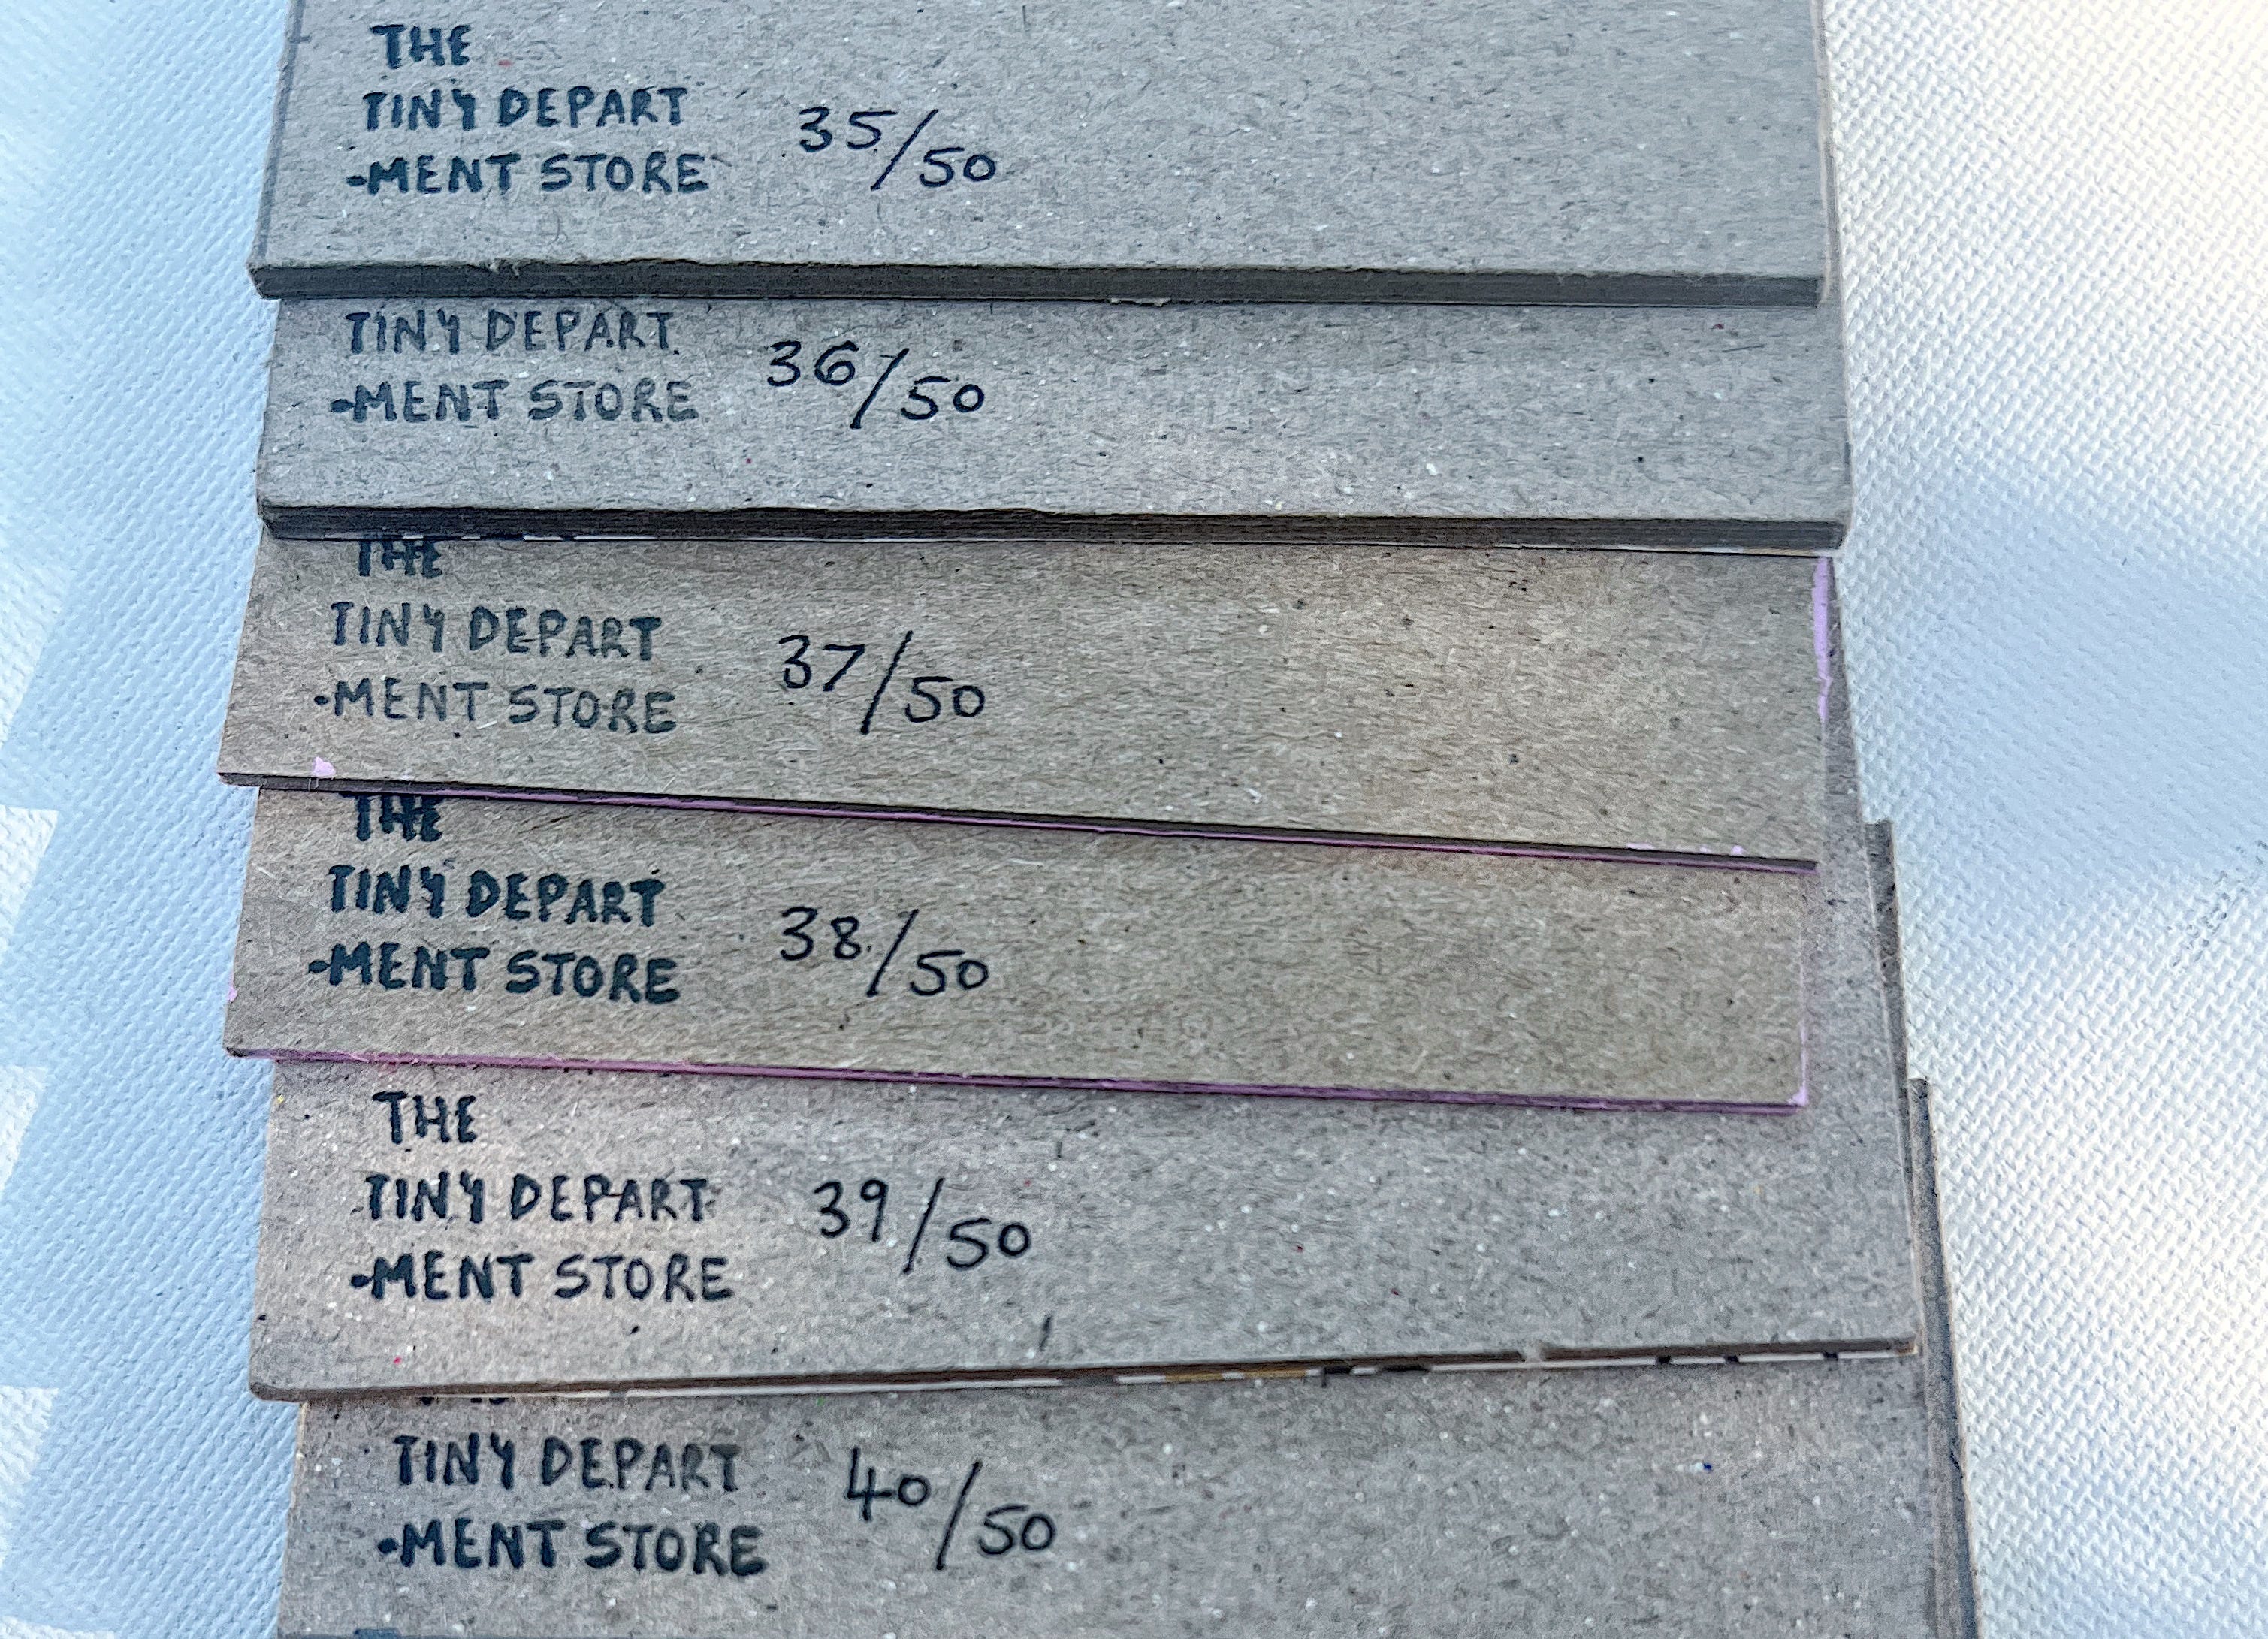 THE
TINY DEPART
-MENT STORE
35/50
TINY DEPART
-MENT STORE
36/50
THE
TINY DEPART
-MENT STORE
37/50
THE
TINY DEPART
-MENT STORE
38/50
THE
TINY DEPART
-MENT STORE
39/50
TINY DEPART
-MENT STORE
40/50